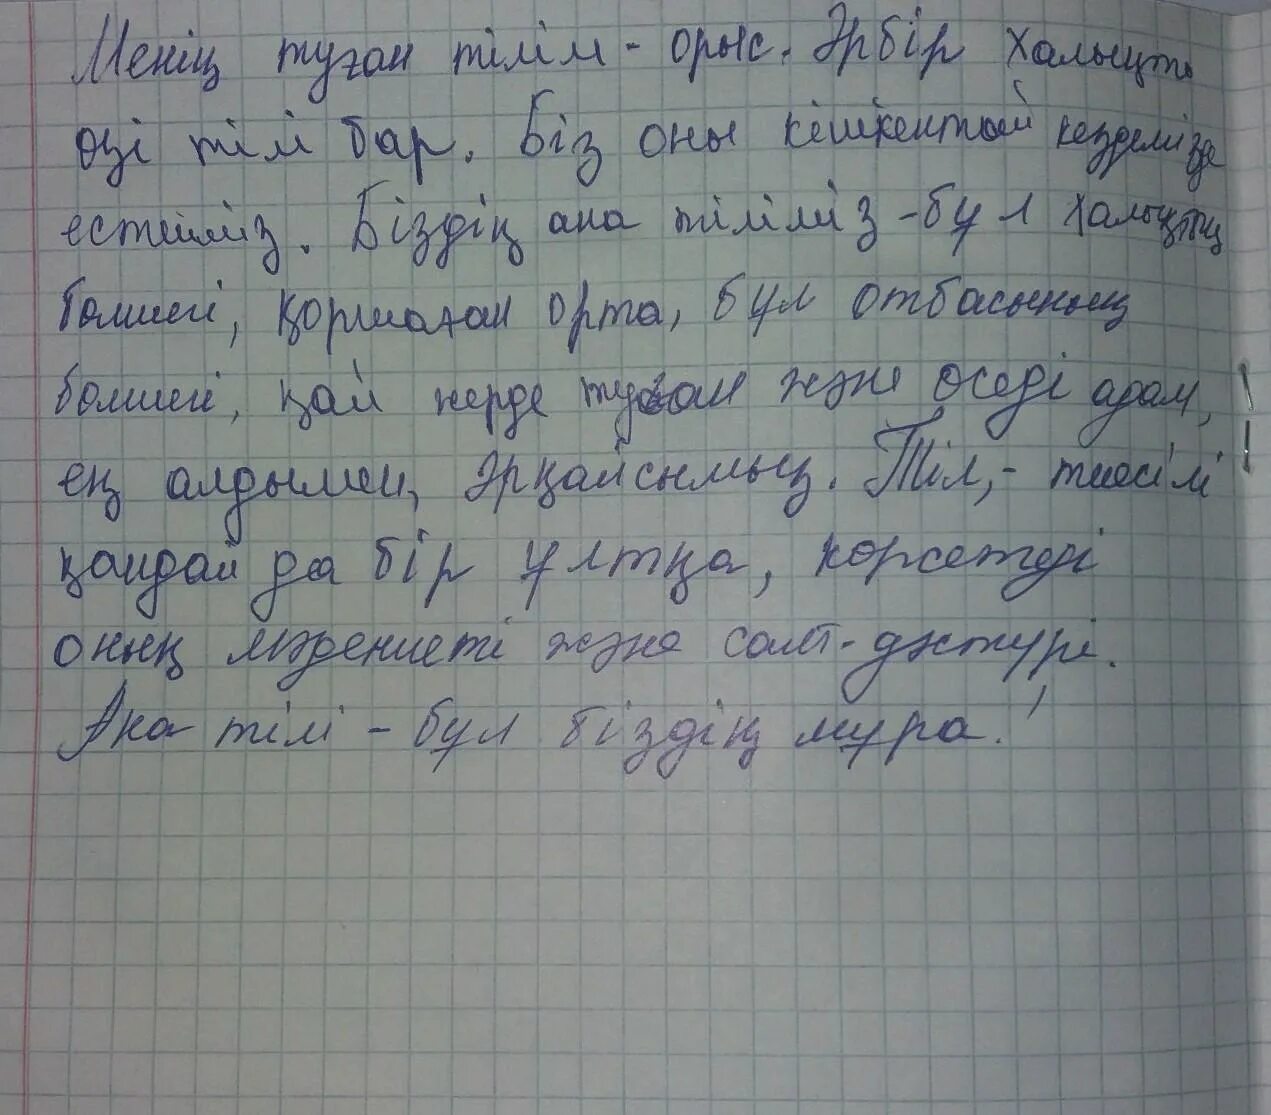 Менің туған тілім - орыс. Әрбір халықты
өзі тілі бар. Біз оны кішкентай кездемізде
естиміз. Біздің ана тіліміз - бұл халықтың
бөлшегі, қоршаған орта, бұл отбасының
бөлшегі, қай жерде туған және өседі адам,
ең алдымен, әрқайсымың. Тіл, - тиесілі
қандай да бір ұлтқа, көрсетеді
оның мәдениеті және салт-дәстүрі.
Ана тілі - бұл біздің мұра!